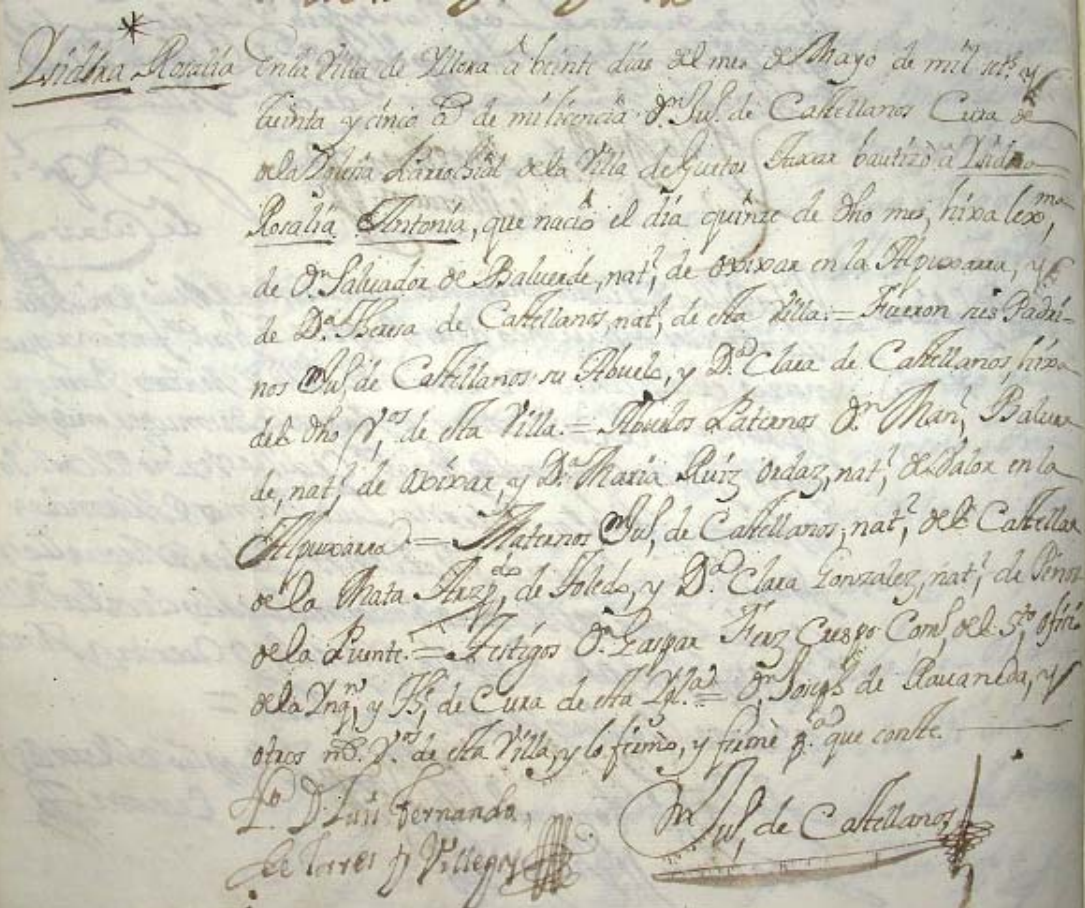 *
Ysidora Rosalia
En la Villa de Yllora a beinte dias del mes de Mayo de mil sets. y
treinta y cinco as. de mi licencia Dn. Jul. de Castellanos Cura de
de la Yglesia Parrochial de la Villa de Huetor Taxar bautizò a Ysidora
Rosalia Antonia, que naciò el dia quinze de dho mes, hixa lexma.,
de Dn. Salvador de Balverde, natl. de Oxixar en la Alpuxarra, y
de Da. Theresa de Castellanos, natl. de esta Villa. = Fueron sus Padri-
nos Dn. Jul. de Castellanos su Abuelo, y Da. Clara de Castellanos, hixa
del dho Vos. de esta Villa. = Abuelos Paternos Dn. Manl. Balver
de, natl. de Oxixar, y Da. Maria Ruiz Ordaz, natl. de Valor en la
Alpuxarra = Maternos Dn. Jul. de Castellanos, natl. del Castellar
de la Mata Arzpdo. de Toledo, y Da. Clara Gonzalez, natl. de Pinos
de la Puente. = Testigos Dn. Gaspar Frnz Crespo Coms. del Sto. ofiçio
de la Ynqn. y Be. de Cura de esta Ygla. = Dn. Joseph de Ravaneda, y
otros ms. Vos. de esta Villa, y lo firmò, y firmè pa. que conste.
Ldo. D. Luis Fernando
de Torres y Villegas
Dn. Jul. de Castellanos